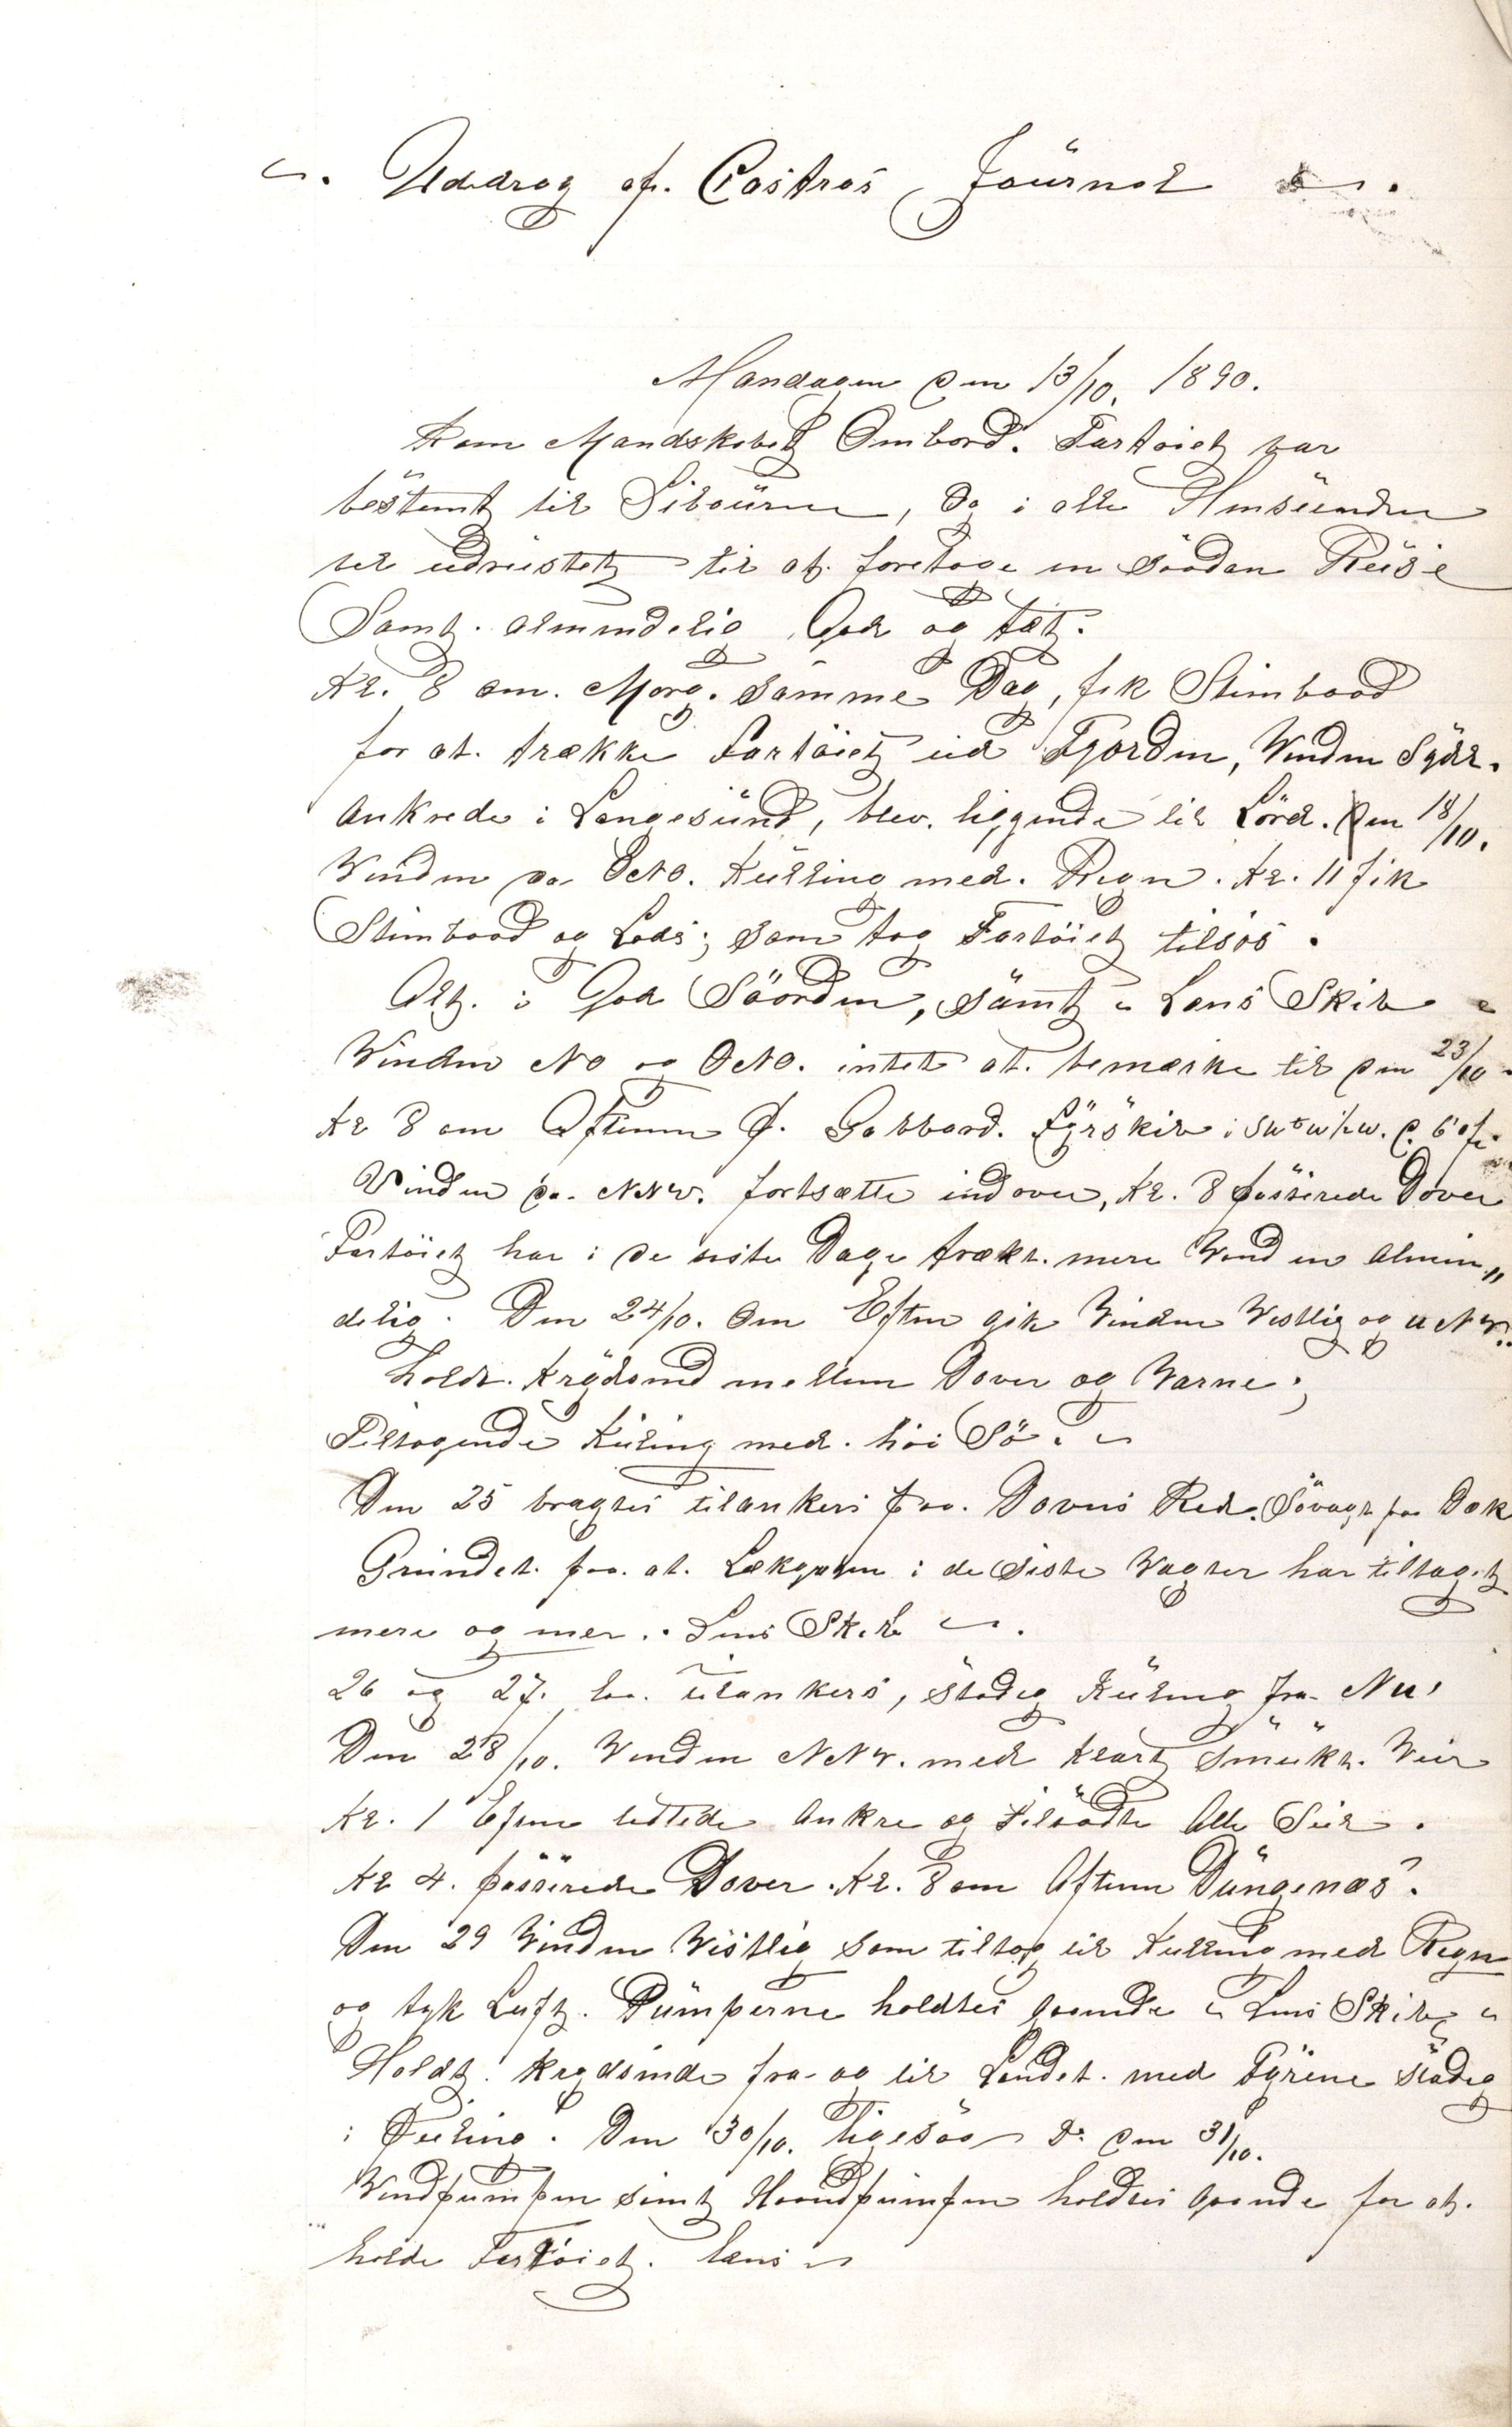 Uddrag af. Castros Journal
Mandagen den 13/10. 1890.
Kom Mandskabet Ombord. Fartøiet var
bestemt til Libourne, da i alle Hinseender
vel udrustet til at foretage en saadan Reise
Samt. almindelig God og tæt.
Kl. 8 om. Morg. samme Dag, fik Stimbaad
for at. trække Fartöiet ud Fjorden, Vinden Sydl.
Ankrede i Langesund, blev. liggende til Lörd. den 18/10.
Vinden da ONO. Kulling med. Regn. Kl. 11 fik
Stimbaad og Lods; som tog Fartöiet tilsös.
Alt. i God Söorden, samt Lens Skib
Vinden NO og ONO. intet at. bemærke til den 23/10.
Kl 8 om Aftenen Gabbard. Fyrskib i
Vinden da. NNW. fortsætte indover, Kl. 8 passerede Dover
Fartöiet har i de siste Dage trækt. mere Vand en Almin„
delig. Den 24/10. Om Eftm gik Vinden Vestlig og WNW.
holdt. Krydsend mellem Dover og Varne;
Tiltagende Kuling med. höi Sö.
Den 25 bragtes tilankers paa. Dovers Red. Sövagt paa Dæk
Grundet. paa. at. Lækagen i de Siste Vagter har tiltaget
mere og mer. Lens Skib
26 og 27. laa. tilankers, stadig Kuling fra NW,
Den 28/10. Vinden NNW. med klart smukt. Veir
Kl. 1 Efm lettede Ankre og tilsadte Alle Seil.
Kl 4. passerede Dover. Kl. 8 om Aftenen Dungenæs.
Den 29 Vinden Vestlig som tiltog til Kulling med Regn
og tyk Luft. Pumperne holdtes gaaende Lens Skib
Holdt. krydsende fra og til Landet. med Fyrene stadig
i Peiling. Den 30/10. ligesaa D: den 31/10.
Vindpumpen samt Haandpumpen holdtes gaaende for at.
holde Fartöiet. læns